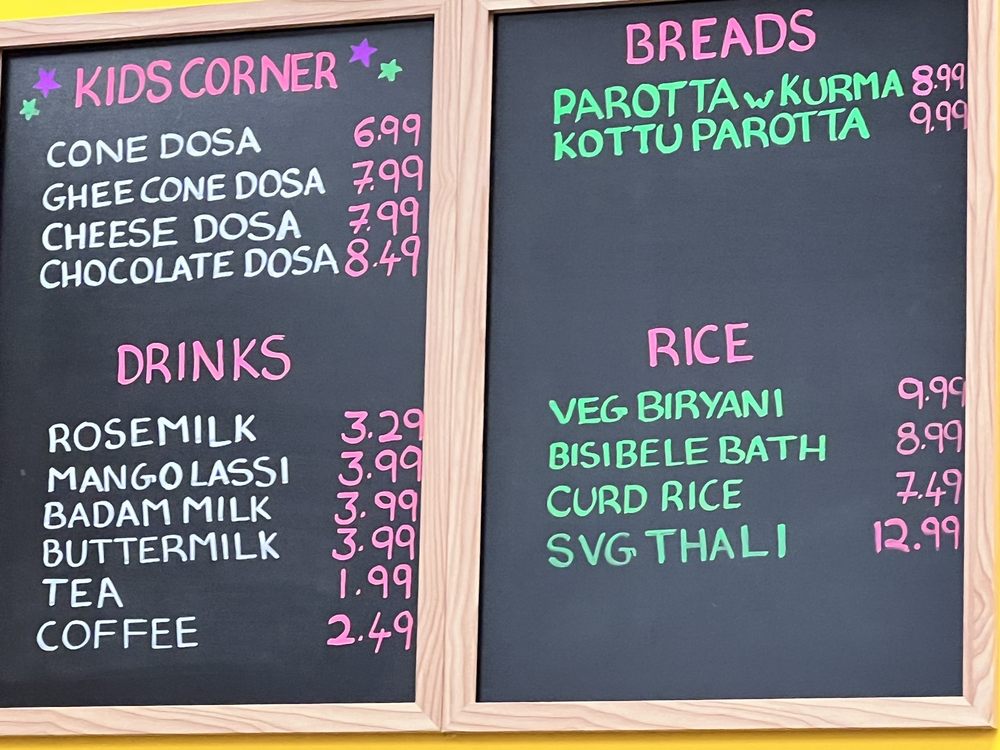 KIDS CORNER
CONE DOSA 6.99
GHEE CONE DOSA 7.99
CHEESE DOSA 7.99
CHOCOLATE DOSA 8.49
DRINKS
ROSEMILK 3.29
MANGO LASSI 3.99
BADAM MILK 3.99
BUTTERMILK 3.99
TEA 1.99
COFFEE 2.49
BREADS
PAROTTA w KURMA 8.99
KOTTU PAROTTA 9.99
RICE
VEG BIRYANI 9.99
BISIBELE BATH 8.99
CURD RICE 7.49
SVG THALI 12.99